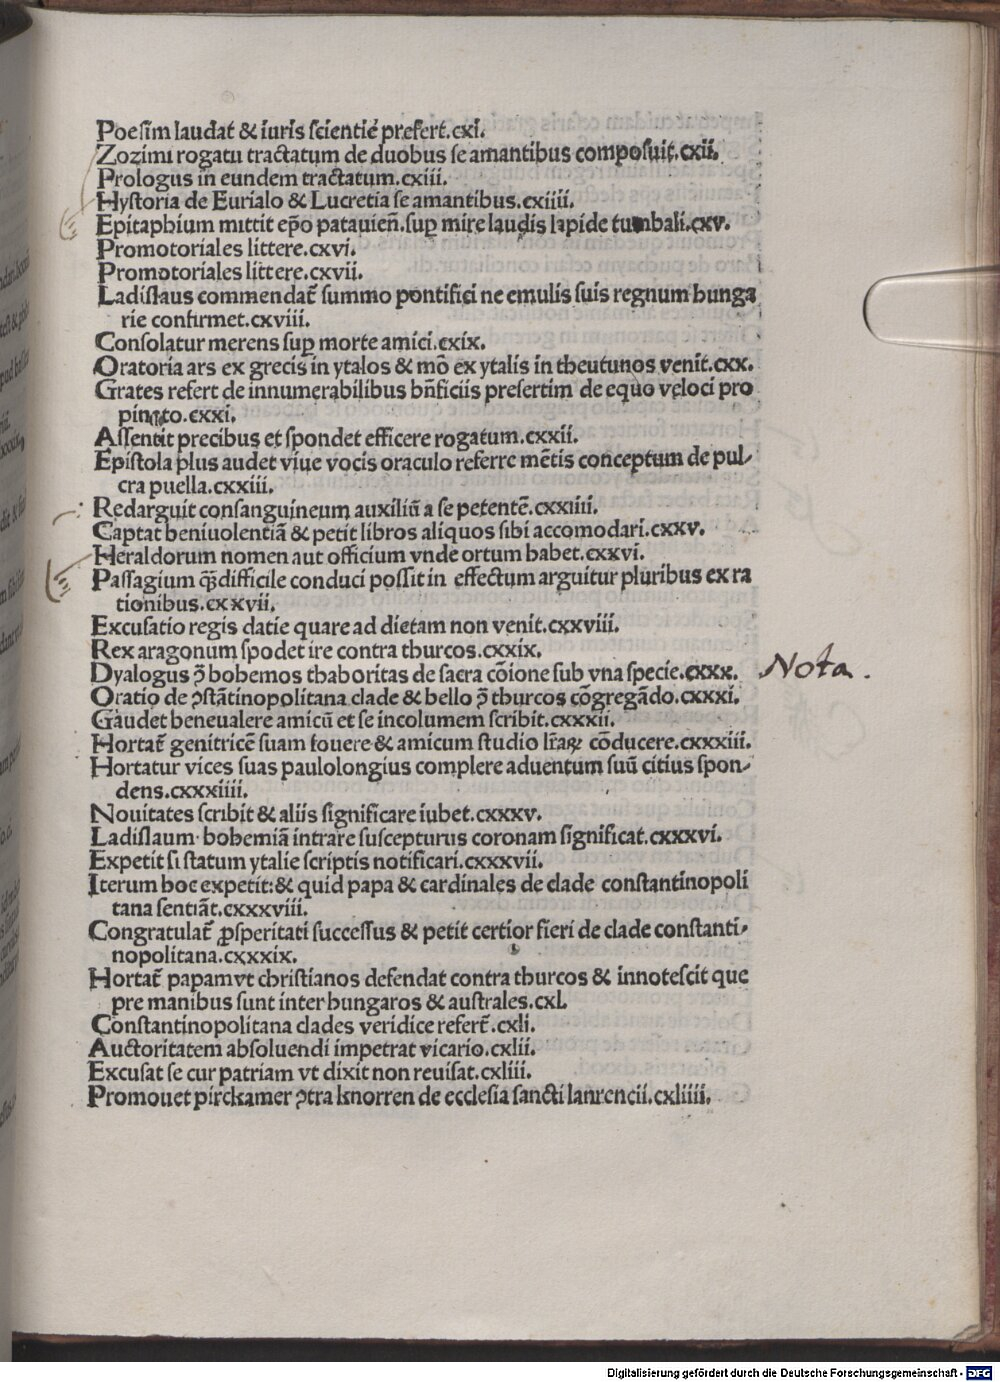 Poesim laudat & iuris scientie prefert.cxi.
Zozimi rogatu tractatum de duobus se amantibus composuit.cxii.
Prologus in eundem tractatum.cxiii.
Hystoria de Eurialo & Lucretia se amantibus.cxiiii.
Epitaphium mittit ep̄o patauien̄.sup mire laudis lapide tumbali.cxv.
Promotoriales littere.cxvi.
Promotoriales littere.cxvii.
Ladislaus commendat̄ summo pontifici ne emulis suis regnum hunga
rie confirmet.cxviii.
Consolatur merens sup morte amici.cxix.
Oratoria ars ex grecis in ytalos & mō ex ytalis in theutunos venit.cxx.
Grates refert de innumerabilibus bn̄ficiis presertim de equo veloci pro
pinato.cxxi.
Assentit precibus et spondet efficere rogatum.cxxii.
Epistola plus audet viue vocis oraculo referre mētis conceptum de pul⸗
cra puella.cxxiii.
Redarguit consanguineum auxiliū a se petentē.cxxiiii.
Captat beniuolentiā & petit libros aliquos sibi accomodari.cxxv.
Heraldorum nomen aut officium vnde ortum habet.cxxvi.
Passagium q̄ȝ difficile conduci possit in effectum arguitur pluribus ex ra
tionibus.cxxvii.
Excusatio regis datie quare ad dietam non venit.cxxviii.
Rex aragonum spodet ire contra thurcos.cxxix.
Dyalogus ꝯ̄ bohemos thaboritas de sacra cōione sub vna specie.cxxx. Nota.
Oratio de ꝯstātinopolitana clade & bello ꝯ̄ thurcos cōgregādo.cxxxi.
Gaudet beneualere amicū et se incolumem scribit.cxxxii.
Hortat̄ genitricē suam fouere & amicum studio lr̄aꝝ cōducere.cxxxiii.
Hortatur vices suas paulolongius complere aduentum suū citius spon⸗
dens.cxxxiiii.
Nouitates scribit & aliis significare iubet.cxxxv.
Ladislaum bohemiā intrare suscepturus coronam significat.cxxxvi.
Expetit si statum ytalie scriptis notificari.cxxxvii.
Iterum hoc expetit:& quid papa & cardinales de clade constantinopoli
tana sentiāt.cxxxviii.
Congratulat̄ ꝓsperitati successus & petit certior fieri de clade constanti⸗
nopolitana.cxxxix.
Hortat̄ papam vt christianos defendat contra thurcos & innotescit que
pre manibus sunt inter hungaros & australes.cxl.
Constantinopolitana clades veridice refert̄.cxli.
Auctoritatem absoluendi impetrat vicario.cxlii.
Excusat se cur patriam vt dixit non reuisat.cxliii.
Promouet pirckamer ꝯtra knorren de ecclesia sancti lanrencii.cxliiii.
Digitalisierung gefördert durch die Deutsche Forschungsgemeinschaft - DFG